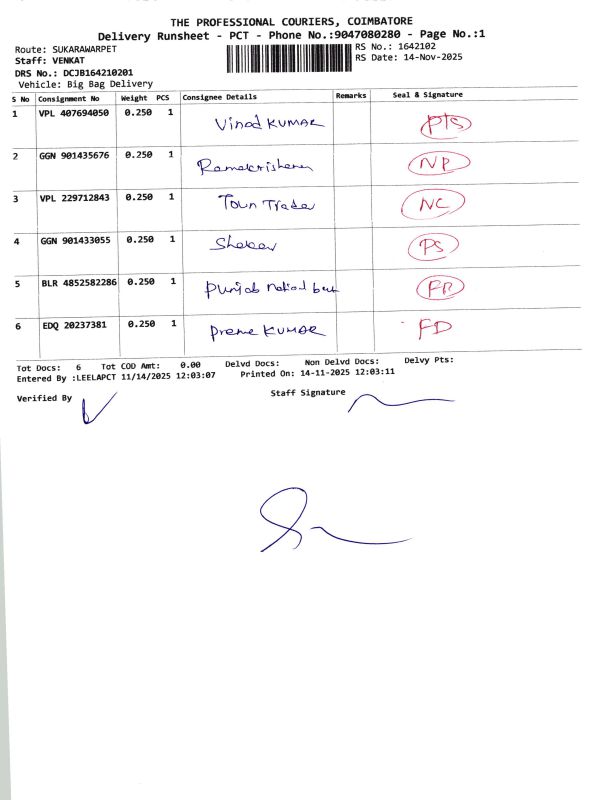 THE PROFESSIONAL COURIERS, COIMBATORE
Delivery Runsheet - PCT - Phone No.:9047080280 - Page No.:1
Route: SUKARAWARPET RS No.: 1642102
Staff: VENKAT RS Date: 14-Nov-2025
DRS No.: DCJB164210201
Vehicle: Big Bag Delivery
S No Consignment No Weight PCS Consignee Details Remarks Seal & Signature
1 VPL 407694050 0.250 1 Vinod KUMAR PTS
2 GGN 901435676 0.250 1 NP
3 VPL 229712843 0.250 1 Toun Trader NC
4 GGN 901433055 0.250 1 Shekar PS
5 BLR 4852582286 0.250 1 Punjab FR
6 EDQ 20237381 0.250 1 Preme KUMAR FD
Tot Docs: 6 Tot COD Amt: 0.00 Delvd Docs: Non Delvd Docs: Delvy Pts:
Entered By :LEELAPCT 11/14/2025 12:03:07 Printed On: 14-11-2025 12:03:11
Verified By Staff Signature